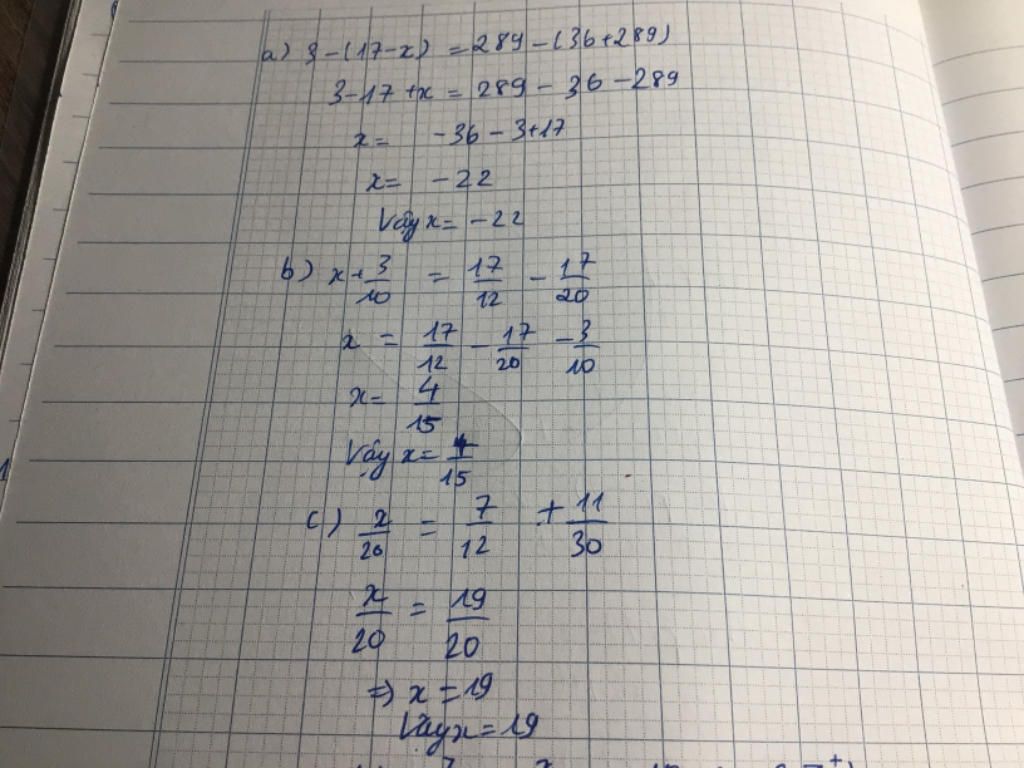 a) 3-(17-x) = 289-(36+289)
3-17+x = 289-36-289
x= -36-3+17
x= -22
Vậy x= -22
b) x+3/10 = 17/12 - 17/20
x = 17/12 - 17/20 - 3/10
x= 4/15
Vậy x= 4/15
c) x/20 = 7/12 + 11/30
x/20 = 19/20
=) x=19
Vậy x=19